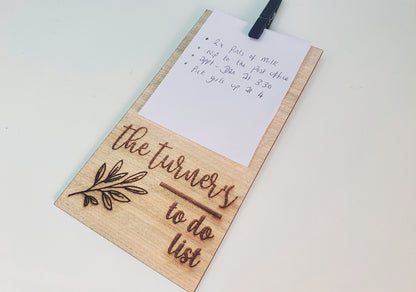 • 2x Pints of Milk
• Nip to the post office
• Appt - 3:30
• Pick girls up at 4
the turner's
to do
list